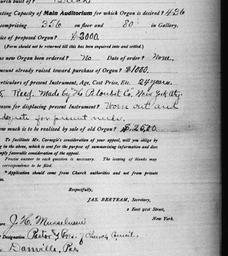 ating Capacity of Main Auditorium for which Organ is desired? 436
comprising 356 on floor and 80 in Gallery.
Price of proposed Organ? $2000
(Form should not be returned till this has been inquired into and settled.)
new Organ been ordered? No Date of order? None
mount already raised toward purchase of Organ? $1000.
rticulars of present Instrument, Age, Cost Price, Etc. 24 years.
Reed. Made by The Co. New York City.
eason for displacing present Instrument? Worn out and
for present needs.
ow much is to be realised by sale of old Organ? $
To facilitate Mr. Carnegie's consideration of your appeal, will you be obliged
ing in the above, which is sent for the purpose of summarizing information and
mply favorable consideration of the appeal.
Precise answer to each question is necessary. The issuing of blanks may
correspondence to be filed.
Application should come from Church authorities and not from private
Respectfully,
JAS. BERTRAM, Secretary,
2 East 91st Street,
New York.
J. H. Musselman
Designation Pastor & Pres. of Church Council.
Danville, Pa.